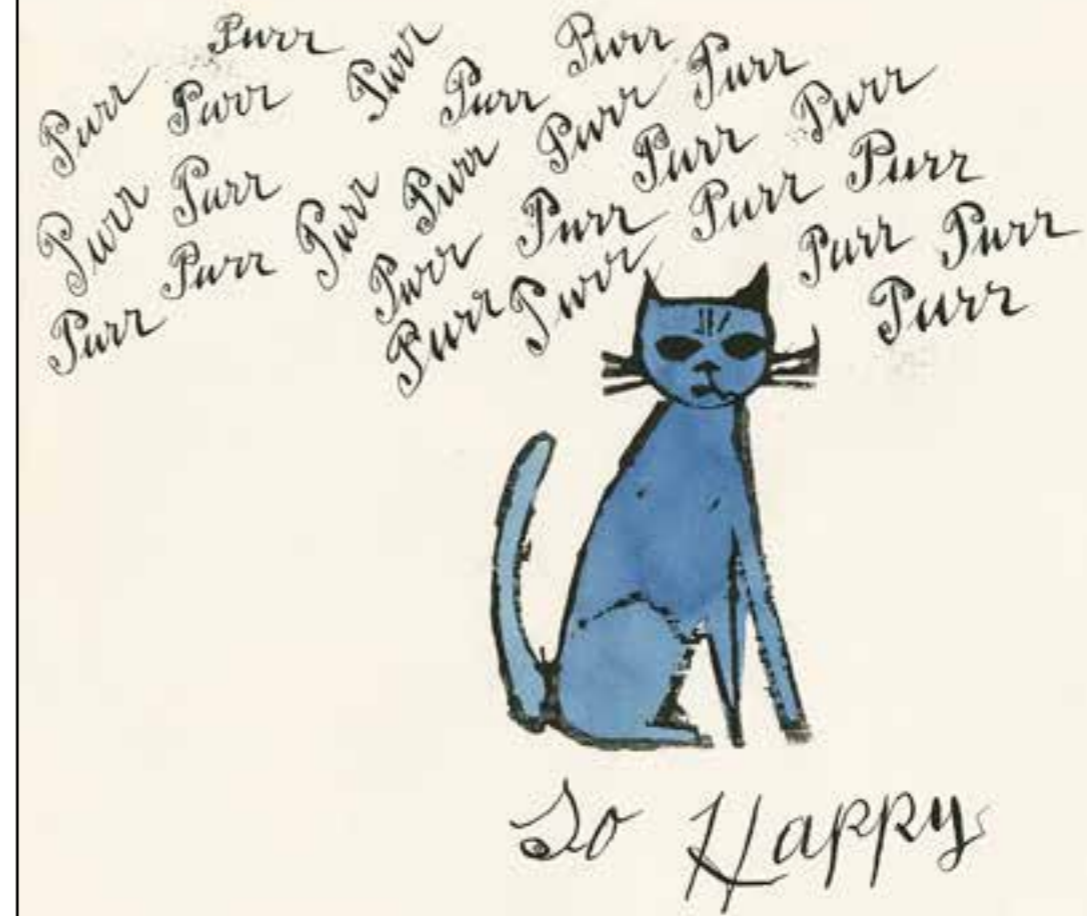 Purr Purr Purr Purr
Purr Purr Purr Purr Purr
Purr Purr Purr Purr
Purr Purr Purr Purr
Purr Purr Purr Purr
Purr Purr Purr Purr
So Happy